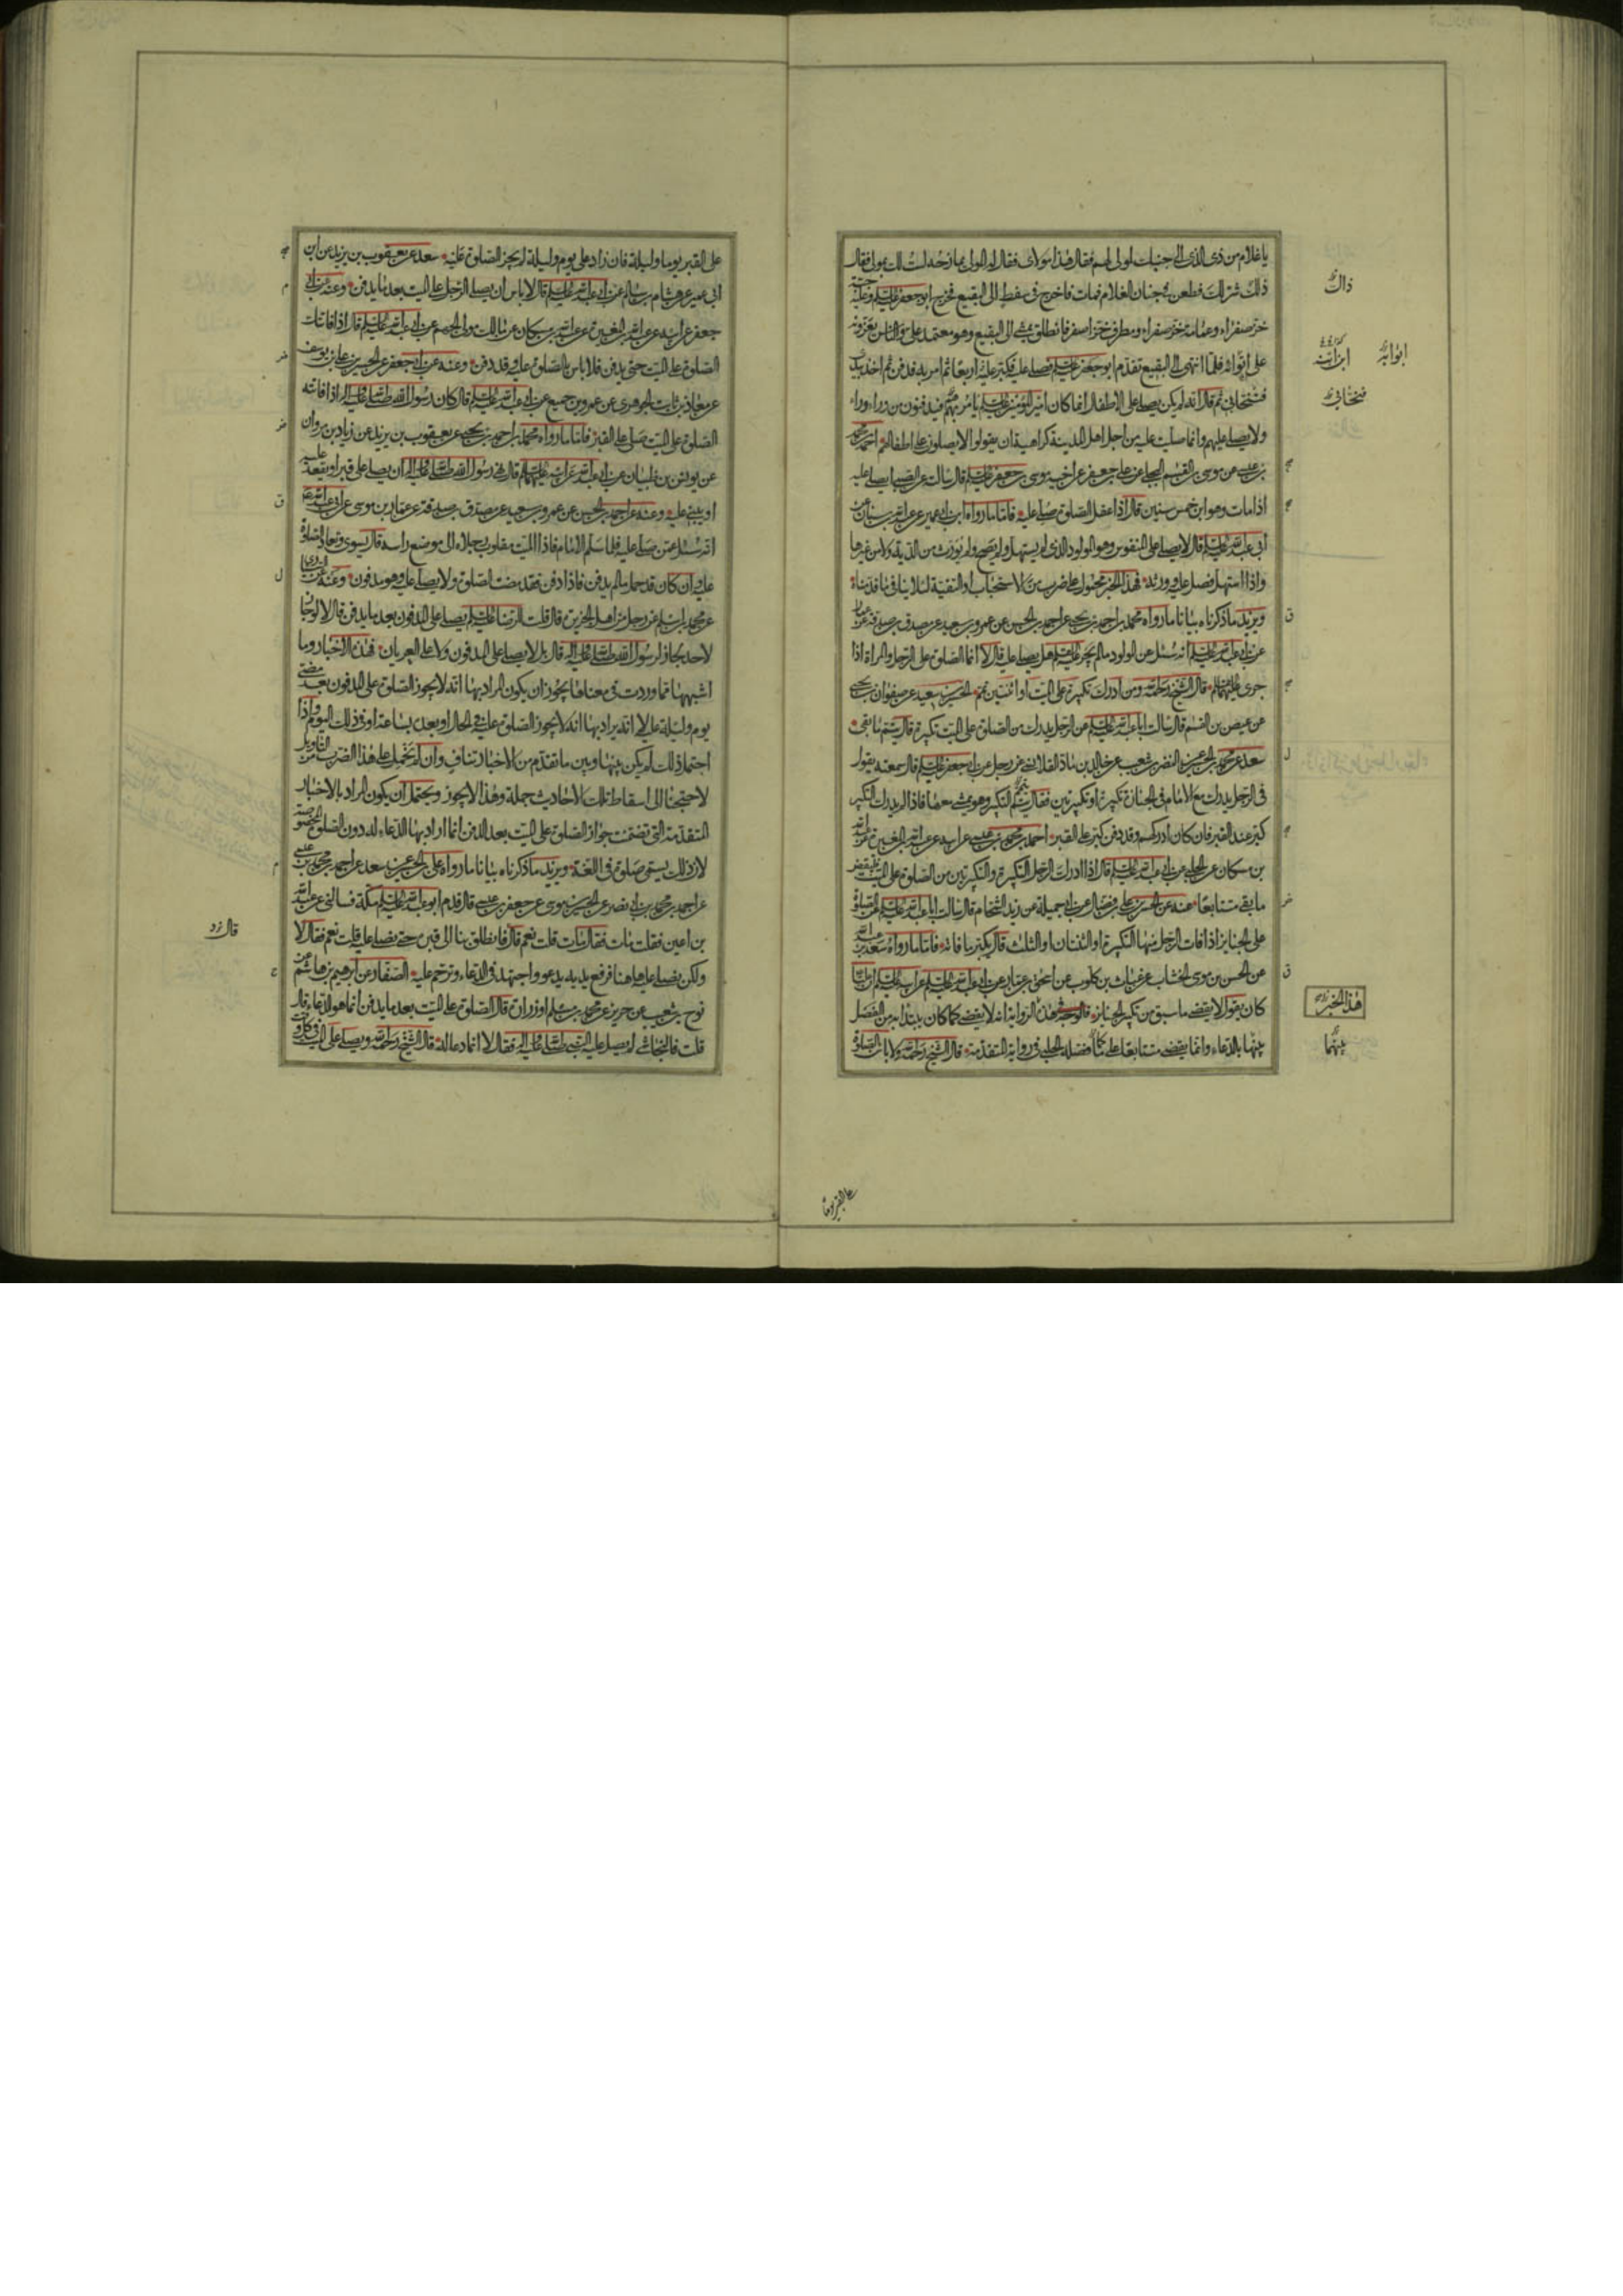 يا غلام من ذي الذي الى جنبك لمولى لهم فقال هذا مولاي فقال له المولى يمازحه لست لك بمولى فقال
ذلك شر لك فطعن في جنان الغلام فمات فاخرج في سفط الى البقيع فخرج ابو جعفر عليه السلم وعليه جبة
خز صفراء وعمامة خز صفراء ومطرف خز اصفر فانطلق يمشي الى البقيع وهو معتمد علي والناس يعزونه
على ابن ابنه فلما انتهى الى البقيع تقدم ابو جعفر عليه السلم فصلى عليه فكبر عليه اربعا ثم امر به فدفن ثم اخذ بيدي
فتنحى بي ثم قال انه لم يكن يصلى على الاطفال انما كان امير المؤمنين عليه السلم يأمر بهم فيدفنون من وراء وراء
ولا يصلي عليهم وانما صليت عليه من اجل اهل المدينة كراهية ان يقولوا لا يصلون على اطفالهم احمد بن محمد
بن عيسى عن موسى بن القسم البجلي عن علي بن جعفر عن اخيه موسى بن جعفر عليه السلم قال سالت عن الصبي ايصلى عليه
اذا مات وهو ابن خمس سنين قال اذا عقل الصلوة صلى عليه فاما ما رواه ابن ابي عمير عن عبد الله بن سنان عن
ابي عبد الله عليه السلم قال لا يصلى على المنفوس وهو المولود الذي لم يستهل ولم يصح ولم يورث من الدية ولا من غيرها
واذا استهل فصل عليه وورثه فهذا الخبر محمول على ضرب من الاستحباب او التقية لئلا ينافي ما قدمناه
ويزيد ما ذكرناه بيانا ما رواه محمد بن احمد بن يحيى عن احمد بن الحسن عن عمرو بن سعيد عن مصدق بن صدقة عن عمار
عن ابي عبد الله عليه السلم انه سئل عن المولود ما لم يجر عليه القلم هل يصلى عليه قال لا انما الصلوة على الرجل والمراة اذا
جرى عليهما القلم قال الشيخ رحمه الله ومن ادرك تكبيرة على الميت او اثنتين تمم الحسين بن سعيد عن صفوان بن يحيى
عن عيص بن القسم قال سالت ابا عبد الله عليه السلم عن الرجل يدرك من الصلوة على الميت تكبيرة قال يتم ما بقي
سعد عن محمد بن الحسين عن النضر بن شعيب عن خالد بن ماد القلانسي عن رجل عن ابي جعفر عليه السلم قال سمعته يقول
في الرجل يدرك مع الامام في الجنازة تكبيرة او تكبيرتين فقال يتم التكبير وهو يمشي معها فاذا لم يدرك التكبير
كبر عند القبر فان كان ادركهم وقد دفن كبر على القبر احمد بن محمد بن عيسى عن ابيه عن عبد الله بن المغيرة عن عبد الله
بن مسكان عن الحلبي عن ابي عبد الله عليه السلم قال اذا ادرك الرجل التكبيرة والتكبيرتين من الصلوة على الميت فليقض
ما بقي متتابعا عنه عن الحسن بن علي بن فضال عن ابي جميلة عن زيد الشحام قال سالت ابا عبد الله عليه السلم عن الصلوة
على الجنايز اذا فات الرجل منها التكبيرة او الثنتان او الثلث قال يكبر ما فاته فاما ما رواه سعد بن عبد الله
عن الحسن بن موسى الخشاب عن غياث بن كلوب عن اسحق بن عمار عن ابي عبد الله عليه السلم عن ابيه عليه السلم ان عليا
كان يقول لا يقضى ما سبق من تكبير الجنايز فالوجه في هذه الرواية انه لا يقضي كما كان يبتدا به من الفصل
بينها بالدعاء وانما يقضى متتابعا على ما فصله الحلبي في رواية المتقدمة قال الشيخ رحمه الله ولا باس بالصلوة
ذاك
ابن ابنه
ابو ابنه
فتنحا بي
هذا الخبر
بينهما
على القبر يوما
على القبر يوما وليلة فان زاد على يوم وليلة لم يجز الصلوة عليه سعد عن يعقوب بن يزيد عن ابن
ابي عمير عن هشام بن سالم عن ابي عبد الله عليه السلم قال لا باس ان يصلي الرجل على الميت بعد ما يدفن وعنه عن ابي
جعفر عن ابيه عن عبد الله بن المغيرة عن عبد الله بن مسكان عن مالك مولى الجهم عن ابي عبد الله عليه السلم قال اذا فاتتك
الصلوة على الميت حتى يدفن فلا باس بالصلوة عليه وقد دفن وعنه عن ابي جعفر عن الحسين بن علي بن يوسف
عن معاذ بن ثابت الجوهري عن عمرو بن جميع عن ابي عبد الله عليه السلم قال كان رسول الله صلى الله عليه واله اذا فاتته
الصلوة على الميت صلى على القبر فاما ما رواه محمد بن احمد بن يحيى عن يعقوب بن يزيد عن زياد بن مروان
عن يونس بن ظبيان عن ابي عبد الله عن ابيه عليهما السلم قال نهى رسول الله صلى الله عليه واله ان يصلى على قبر او يقعد عليه
او يبنى عليه وعنه عن احمد بن الحسن عن عمرو بن سعيد عن مصدق بن صدقة عن عمار بن موسى عن ابي عبد الله ع
انه سئل عمن صلى عليه فلما سلم الامام فاذا الميت مقلوب رجلاه الى موضع راسه قال يسوى وتعاد الصلوة
عليه وان كان قد حمل ما لم يدفن فاذا دفن فقد مضت الصلوة ولا يصلى عليه وهو مدفون وعنه عن السندي
عن محمد بن اسلم عن رجل من اهل الجزيرة قال قلت للرضا عليه السلم يصلى على المدفون بعد ما يدفن قال لا لو جاز
لاحد لجاز لرسول الله صلى الله عليه واله قال بل لا يصلى على المدفون ولا على العريان فهذه الاخبار وما
اشبهها مما وردت في معناها يجوز ان يكون المراد بها انه لا يجوز الصلوة على المدفون بعد مضي
يوم وليلة عليه لا انه يراد بها انه لا يجوز الصلوة عليه في الحال او بعد بساعة او في ذلك اليوم واذا
احتمل ذلك لم يكن بينها وبين ما تقدم من الاخبار تناف وان لم نحمل على هذا الضرب من التاويل
لاحتجنا الى اسقاط تلك الاحاديث جملة وهذا لا يجوز ويحتمل ان يكون المراد بالاخبار
المتقدمة التي تضمنت جواز الصلوة على الميت بعد الدفن انما اراد بها الدعاء له دون الصلوة المخصوصة
لان ذلك يسمى صلوة في اللغة ويزيد ما ذكرناه بيانا ما رواه علي بن الحسين عن سعد عن احمد بن محمد بن عيسى
عن احمد بن محمد بن ابي نصر عن الحسين بن موسى عن جعفر بن عيسى قال قدم ابو عبد الله عليه السلم مكة فسالني عن عبد الله
بن اعين فقلت مات فقال مات قلت نعم قال فانطلق بنا الى قبره حتى نصلي عليه قلت نعم فقال لا
ولكن نصلي عليه هاهنا فرفع يديه يدعو واجتهد في الدعاء وترحم عليه الصفار عن ابرهيم بن هاشم عن
نوح بن شعيب عن حريز عن محمد بن مسلم او زرارة قال الصلوة على الميت بعد ما يدفن انما هو الدعاء قال
قلت فالنجاشي لم يصل عليه النبي صلى الله عليه واله فقال لا انما دعا له قال الشيخ رحمه الله ويصلى على الميت في كل وقت